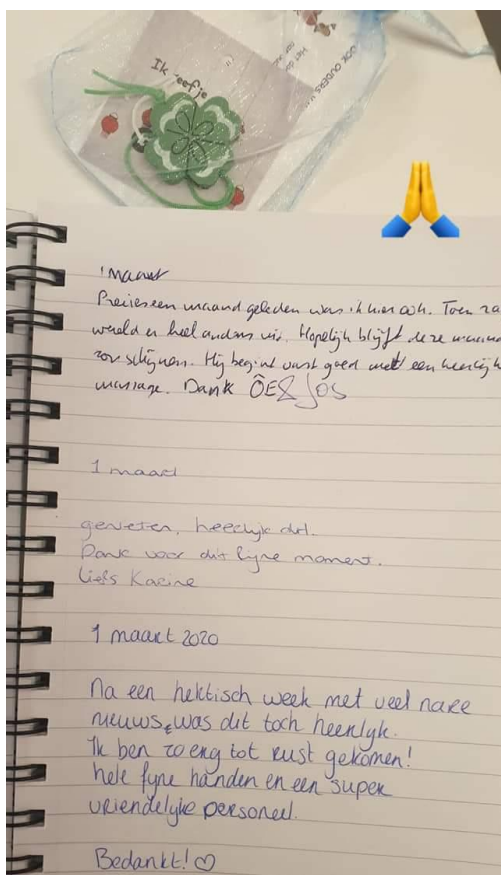 Ik geefje
OOK OUDERS
Het
1 maart
Precies een maand geleden was ik hier ook. Toen za
wereld er heel anders uit. Hopelijk blijft deze maand
zon schijnen. Hij begint vast goed met een heerlijk
massage. Dank
1 maart
genieten, heerlijk
Dank voor dit fijne moment.
Liefs Karine
1 maart 2020
Na een hektisch week met veel nare
nieuws, was dit toch heerlyk.
Ik ben zo erg tot rust gekomen!
hele fyne handen en een super
vriendelyke personeel.
Bedankt! ♡